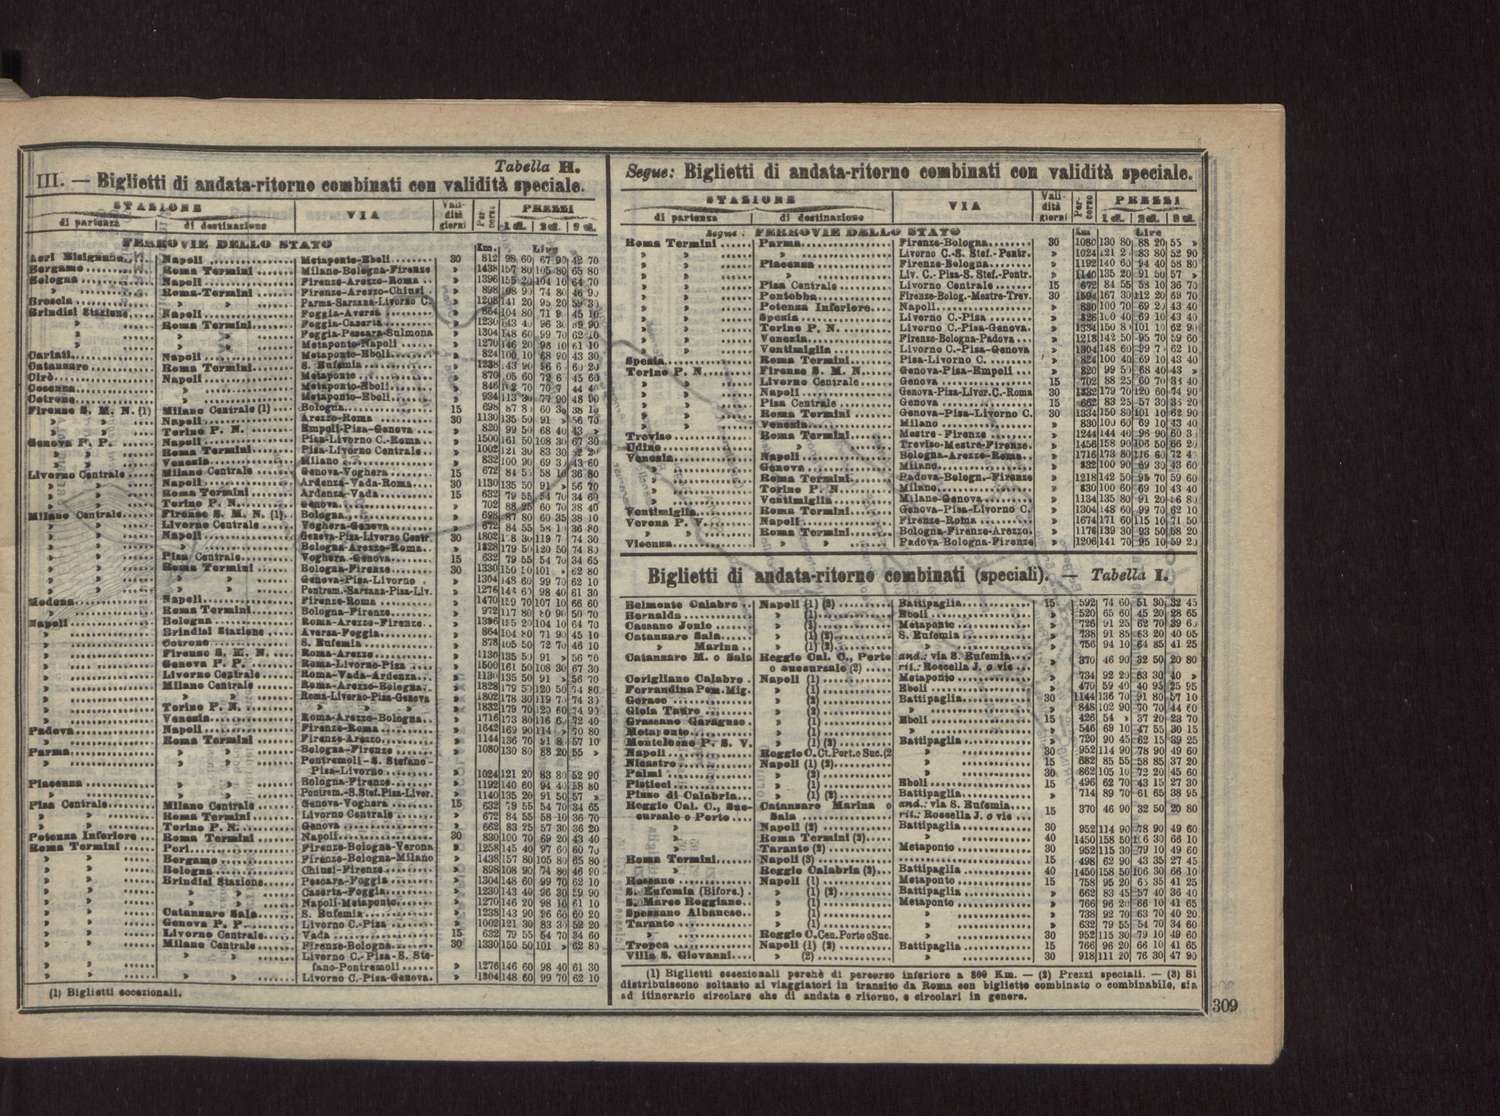 Tabella H.
III. — Biglietti di andata-ritorno combinati con validità speciale.
STAZIONE VIA Vali-dità giorni Per-corso PREZZI
di partenza di destinazione 1 cl. 2 cl. 3 cl.
FERROVIE DELLO STATO Km. Lire
Acri Bisignano Napoli Metaponto-Eboli 30 812 98 60 67 90 42 70
Bergamo Roma Termini Milano-Bologna-Firenze » 1438 157 80 105 80 65 80
Bologna Napoli Firenze-Arezzo-Roma » 1396 155 20 104 10 64 70
» Roma Termini Firenze-Arezzo-Chiusi » 898 108 90 74 80 46 90
Brescia » » Parma-Sarzana-Livorno C. » 1208 141 20 95 20
Brindisi Stazione Napoli Foggia-Aversa » 864 104 80 71 90 45 10
» Roma Termini Foggia-Caserta » 1230 143 40 96 30
» » » Foggia-Pescara-Sulmona » 1304 148 60 99 70 62 10
» » » Metaponto-Napoli » 1270 146 20 98 10 61 10
Cariati Napoli Metaponto-Eboli » 824 100 10 68 90 43 30
Catanzaro Roma Termini S. Eufemia » 1238 143 90 96 60 60 20
Cirò Napoli Metaponto » 870
Cosenza » Metaponto-Eboli » 846
Cotrone » Metaponto-Eboli » 934 113 30 77 90 48 90
Firenze S. M. N. (1) Milano Centrale (1) Bologna 15 698 87 80 60 35 38 10
» » Napoli Arezzo-Roma 30 1130 135 50 91 » 56 70
» » Torino P. N. Empoli-Pisa-Genova » 820 99 50 68 40 43 »
Genova P. P. Napoli Pisa-Livorno C.-Roma » 1500 161 50 108 30 67 30
» » Roma Termini Pisa-Livorno Centrale » 1002 121 30 83 30 52 20
» » Venezia Milano » 832 100 90 69 30 43 60
Livorno Centrale Milano Centrale Genova-Voghera 15 672 84 55 58 10 36 80
» » Napoli Ardenza-Vada-Roma 30 1130 135 50 91 » 56 70
» » Roma Termini Ardenza-Vada 15 632 79 55 54 70 34 60
» » Torino P. N. Genova » 702 88 25 60 70 38 40
Milano Centrale Firenze S. M. N. (1) Bologna » 698 87 80 60 35 38 10
» » Livorno Centrale Voghera-Genova » 672 84 55 58 10 36 80
» » Napoli Genova-Pisa-Livorno Centr. 30 1802
» » » Bologna-Arezzo-Roma » 1828 179 50 120 50 74 80
» » Pisa Centrale Voghera-Genova 15 632 79 55 54 70 34 65
» » Roma Termini Bologna-Firenze 30 1330 150 50 101 » 62 80
» » » » Genova-Pisa-Livorno » 1304 148 60 99 70 62 10
» » » » Pontrem.-Sarzana-Pisa-Liv. » 1276 146 60 98 40 61 30
Modena Napoli Firenze-Roma » 1470 159 70 107 10 66 60
» Roma Termini Bologna-Firenze » 972 117 80 80 90 50 70
Napoli Bologna Roma-Arezzo-Firenze » 1396 155 20 104 10 64 70
» Brindisi Stazione Aversa-Foggia » 864 104 80 71 90 45 10
» Cotrone S. Eufemia » 878 105 50 72 70 46 10
» Firenze S. M. N. Roma-Arezzo » 1130 135 50 91 » 56 70
» Genova P. P. Roma-Livorno-Pisa » 1500 161 50 108 30 67 30
» Livorno Centrale Roma-Vada-Ardenza » 1130 135 50 91 » 56 70
» Milano Centrale Roma-Arezzo-Bologna » 1828 179 50 120 50 74 80
» » » Roma-Livorno-Pisa-Genova » 1802 178 30 119 70 74 30
» Torino P. N. » » 1832 179 70 120 60 74 90
» Venezia Roma-Arezzo-Bologna » 1716 173 80 116 60 72 40
Padova Napoli Firenze-Roma » 1642 169 90 114 » 70 80
» Roma Termini Firenze-Arezzo » 1144 136 70 91 80 57 10
Parma » » Bologna-Firenze » 1080 130 80 88 20 55 »
» » » Pontremoli-S. Stefano-
Pisa-Livorno » 1024 121 20 83 80 52 90
Piacenza » » Bologna-Firenze » 1192 140 60 94 40 58 80
» » » Pontrem.-S.Stef.Pisa-Liver. » 1140 135 20 91 50 57 »
Pisa Centrale Milano Centrale Genova-Voghera 15 632 79 55 54 70 34 65
» » Roma Termini Livorno Centrale » 672 84 55 58 10 36 70
» » Torino P. N. Genova » 662 83 25 57 30 36 20
Potenza Inferiore Roma Termini Napoli 30 830 100 70 69 20 43 40
Roma Termini Peri Firenze-Bologna-Verona » 1258 145 40 97 60 60 70
» » Bergamo Firenze-Bologna-Milano » 1438 157 80 105 80 65 80
» » Bologna Chiusi-Firenze » 898 108 90 74 80 46 90
» » Brindisi Stazione Pescara-Foggia » 1304 148 60 99 70 62 10
» » » » Caserta-Foggia » 1230 143 40 96 30 59 90
» » » » Napoli-Metaponto » 1270 146 20 98 10 61 10
» » Catanzaro Sala S. Eufemia » 1238 143 90 96 60 60 20
» » Genova P. P. Livorno C.-Pisa » 1002 121 30 83 30 52 20
» » Livorno Centrale Vada 15 632 79 55 54 70 34 60
» » Milano Centrale Firenze-Bologna 30 1330 150 50 101 » 62 80
» » » » Livorno C.-Pisa-S. Ste-
fano-Pontremoli » 1276 146 60 98 40 61 30
» » » » Livorno C.-Pisa-Genova. » 1304 148 60 99 70 62 10
(1) Biglietti eccezionali.
Segue: Biglietti di andata-ritorno combinati con validità speciale.
STAZIONE VIA Vali-dità giorni Per-corso PREZZI
di partenza di destinazione 1 cl. 2 cl. 3 cl.
Segue: FERROVIE DELLO STATO Km Lire
Roma Termini Parma Firenze-Bologna 30 1080 130 80 88 20 55 »
» » » Livorno C.-S. Stef.-Pontr. » 1024 121 20 83 80 52 90
» » Piacenza Firenze-Bologna » 1192 140 60 94 40 58 80
» » » Liv. C.-Pisa-S. Stef.-Pontr. » 1140 135 20 91 50 57 »
» » Pisa Centrale Livorno Centrale 15 672 84 55 58 10 36 70
» » Pontebba Firenze-Bolog.-Mestre-Trev. 30 1594 167 30 112 20 69 70
» » Potenza Inferiore Napoli » 830 100 70 69 20 43 40
» » Spezia Livorno C.-Pisa » 826 100 40 69 10 43 40
» » Torino P. N. Livorno C.-Pisa-Genova » 1334 150 80 101 10 62 90
» » Venezia Firenze-Bologna-Padova » 1218 142 50 95 70 59 60
» » Ventimiglia Livorno C.-Pisa-Genova » 1304 148 60 99 70 62 10
Spezia Roma Termini Pisa-Livorno C. » 824 100 40 69 10 43 40
Torino P. N. Firenze S. M. N. Genova-Pisa-Empoli » 820 99 50 68 40 43 »
» » Livorno Centrale Genova 15 702 88 25 60 70 38 40
» » Napoli Genova-Pisa-Livor. C.-Roma 30 1832 179 70 120 60 74 90
» » Pisa Centrale Genova 15 662 83 25 57 30 36 20
» » Roma Termini Genova-Pisa-Livorno C. 30 1334 150 80 101 10 62 90
» » Venezia Milano » 830 100 60 69 10 43 40
Treviso Roma Termini Mestre-Firenze » 1244 144 40 96 90
Udine » » Treviso-Mestre-Firenze » 1456 158 90 106 50 66 20
Venezia Napoli Bologna-Arezzo-Roma » 1716 173 80 116 60 72 40
» Genova Milano » 832 100 90 69 30 43 60
» Roma Termini Padova-Bologn.-Firenze » 1218 142 50 95 70 59 60
» Torino P. N. Milano » 830 100 60 69 10 43 40
» Ventimiglia Milano-Genova » 1134 135 80 91 20
Ventimiglia Roma Termini Genova-Pisa-Livorno C. » 1304 148 60 99 70 62 10
Verona P. V. Napoli Firenze-Roma » 1674 171 60 115 10 71 50
» » Roma Termini Bologna-Firenze-Arezzo » 1176 139 30 93 50 58 20
Vicenza » » Padova-Bologna-Firenze » 1206 141 70 95 10 59 20
Biglietti di andata-ritorno combinati (speciali). — Tabella I.
Belmonte Calabro Napoli (1) (3) Battipaglia 15 592 74 60 51 30 32 45
Bernalda » (1) Eboli » 520 65 60 45 20 28 65
Cassano Jonio » (2) Metaponto » 726 91 25 62 70 39 60
Catanzaro Sala » (1) (2) S. Eufemia » 738 91 85 63 20 40 05
» Marina » (1) (3) » » 756 94 10 64 85 41 25
Catanzaro M. o Sala Reggio Cal. C., Porto and.: via S. Eufemia
o succursale (2) rit.: Roccella J. o vic » 370 46 90 32 50 20 80
Corigliano Calabro Napoli (1) Metaponto » 734 92 20 63 30 40 »
Ferrandina Pom. Mig. » (1) Eboli » 470 59 40 40 95 25 95
Gerace » (2) Battipaglia 30 1144 136 70 91 80 57 10
Gioia Tauro » (2) » » 848 102 90 70 70 44 60
Grassano Garaguso » (1) Eboli 15 426 54 » 37 20 23 70
Metaponto » (1) » » 546 69 10 47 55 30 15
Monteleone P. S. V. » (1) (3) Battipaglia » 720 90 45 62 15 39 25
Napoli Reggio C. Ct. Port. o Suc. (2 » 30 952 114 90 78 90 49 60
Nicastro Napoli (1) (2) » 15 682 85 55 58 85 37 20
Palmi » (2) » 30 862 105 10 72 20 45 60
Pisticci » (1) Eboli 15 496 62 70 43 15 27 30
Pizzo di Calabria » (1) (2) Battipaglia » 714 89 70 61 65 38 95
Reggio Cal. C., Suc- Catanzaro Marina o and.: via S. Eufemia
cursale o Porto Sala rit.: Roccella J. o vic 15 370 46 90 32 50 20 80
» Napoli (2) Battipaglia 30 952 114 90 78 90 49 60
» Roma Termini (2) » 40 1450 158 50 106 30 66 10
» Taranto (2) Metaponto 30 952 115 30 79 10 49 60
Roma Termini Napoli (3) » 15 498 62 90 43 35 27 45
» » Reggio Calabria (2) Battipaglia 40 1450 158 50 106 30 66 10
Rossano Napoli (1) Metaponto 15 758 95 20 65 35 41 25
S. Eufemia (Bifore.) » (1) (2) Battipaglia » 662 83 45 57 40 36 40
S. Marco Roggiano » (1) Metaponto » 766 96 20 66 10 41 65
Spezzano Albanese » (1) » » 738 92 70 63 70 40 20
Taranto » (1) » » 632 79 55 54 70 34 60
» Reggio C. Cen. Porto o Suc. » 30 952 115 30 79 10 49 60
Tropea Napoli (1) (2) Battipaglia 15 766 96 20 66 10 41 65
Villa S. Giovanni » (2) » 30 918 111 20 76 30 47 90
(1) Biglietti eccezionali perchè di percorso inferiore a 800 Km. — (2) Prezzi speciali. — (3) Si
distribuiscono soltanto ai viaggiatori in transito da Roma con biglietto combinato o combinabile, sia
ad itinerario circolare che di andata e ritorno, e circolari in genere.
309